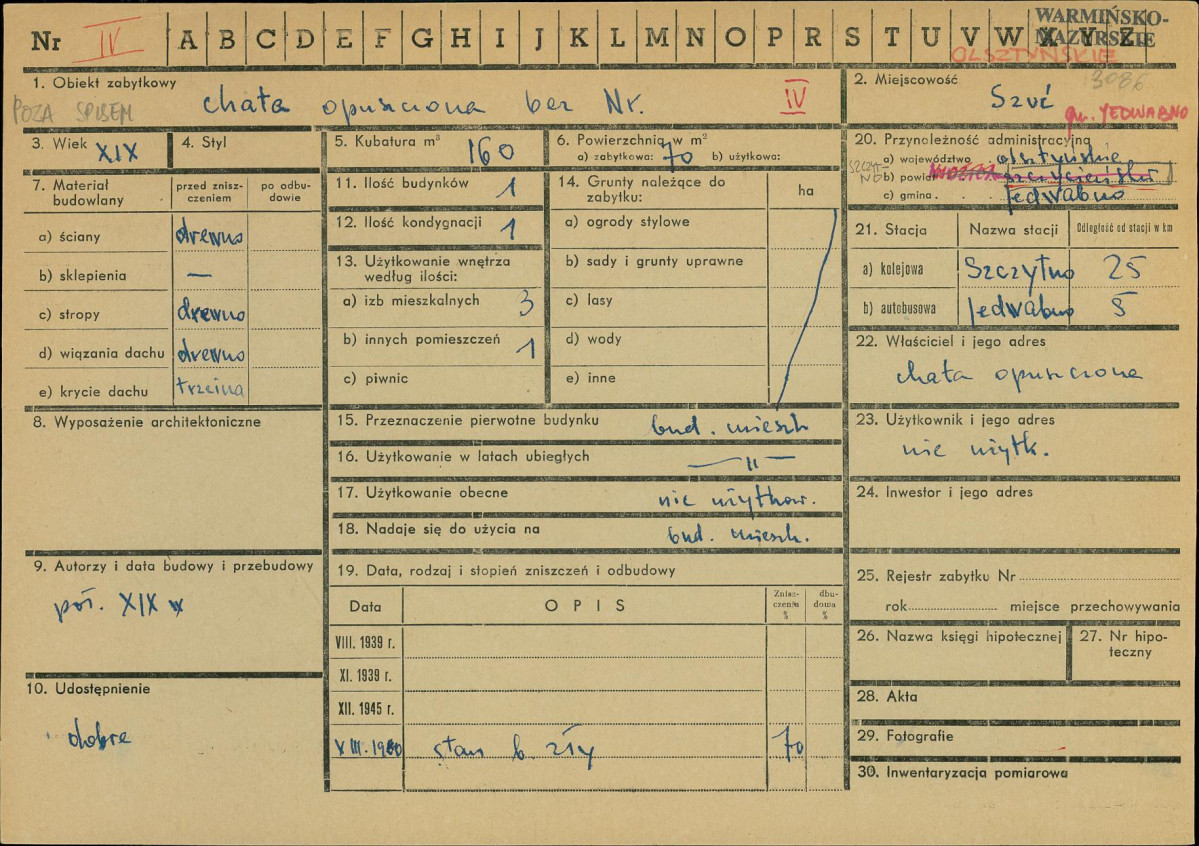 Nr IV A B C D E F G H I J K L M N O P R S T U V W X Y Z
WARMIŃSKO-
MAZURSKIE
OLSZTYŃSKIE
3086
1. Obiekt zabytkowy
POZA SPISEM
chata opuszczona bez Nr. IV
2. Miejscowość
Szuć
gm. JEDWABNO
3. Wiek XIX
4. Styl
5. Kubatura m³ 160
6. Powierzchnia w m²
a) zabytkowa: 70 b) użytkowa:
7. Materiał budowlany
przed zniszczeniem
po odbudowie
a) ściany drewno
b) sklepienia —
c) stropy drewno
d) wiązania dachu drewno
e) krycie dachu trzcina
8. Wyposażenie architektoniczne
9. Autorzy i data budowy i przebudowy
poł. XIX w
10. Udostępnienie
dobre
11. Ilość budynków 1
12. Ilość kondygnacji 1
13. Użytkowanie wnętrza
według ilości:
a) izb mieszkalnych 3
b) innych pomieszczeń 1
c) piwnic
14. Grunty należące do
zabytku:
ha
a) ogrody stylowe
b) sady i grunty uprawne
c) lasy
d) wody
e) inne
15. Przeznaczenie pierwotne budynku bud. mieszk
16. Użytkowanie w latach ubiegłych — " —
17. Użytkowanie obecne nie użytkow.
18. Nadaje się do użycia na bud. mieszk.
19. Data, rodzaj i stopień zniszczeń i odbudowy
Data OPIS Zniszczeniu % dbudowa %
VIII. 1939 r.
XI. 1939 r.
XII. 1945 r.
XIII. 1960 stan b. zły 70
20. Przynależność administracyjna
a) województwo olsztyńskie
SZCZYTNO
b) powiat szczycieński
c) gmina Jedwabno
21. Stacja Nazwa stacji Odległość od stacji w km
a) kolejowa Szczytno 25
b) autobusowa Jedwabno 5
22. Właściciel i jego adres
chata opuszczona
23. Użytkownik i jego adres
nie użytk.
24. Inwestor i jego adres
25. Rejestr zabytku Nr
rok miejsce przechowywania
26. Nazwa księgi hipotecznej
27. Nr hipoteczny
28. Akta
29. Fotografie
30. Inwentaryzacja pomiarowa